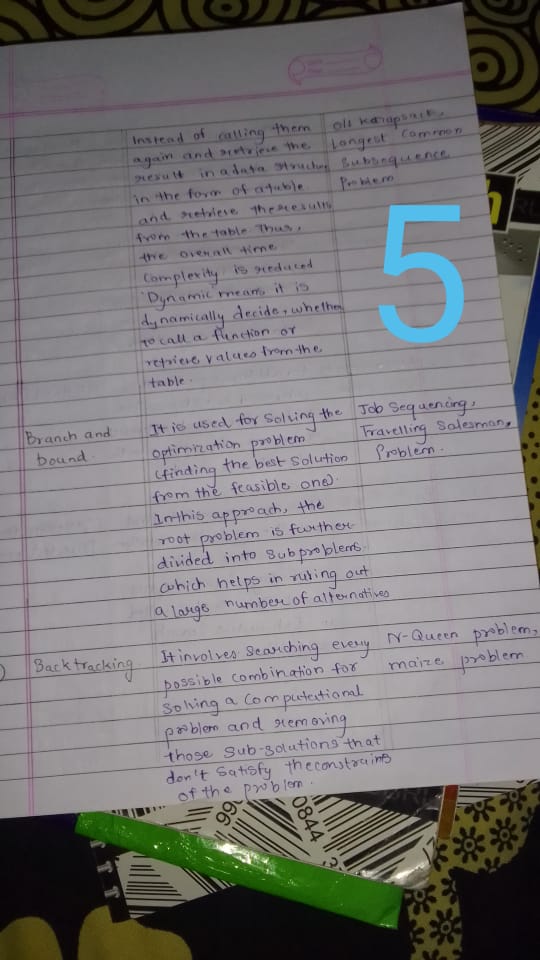 Instead of calling them
again and retrieve the
result in a data structure
in the form of a table
and retrieve the results
from the table. Thus,
the overall time
Complexity is reduced
'Dynamic means it is
dynamically decide, whether
to call a function or
retrieve values from the
table.
0/1 Knapsack,
Longest Common
Subsequence
Problem
5
Branch and
bound.
It is used for solving the
optimization problem
(finding the best solution
from the feasible one).
In this approach, the
root problem is further
divided into subproblems.
which helps in ruling out
a large number of alternatives
Job Sequencing,
Travelling Salesman,
Problem.
Backtracking
It involves searching every
possible combination for
solving a computational
problem and removing
those sub-solutions that
don't satisfy the constrains
of the problem.
N-Queen problem,
maize problem.
0844